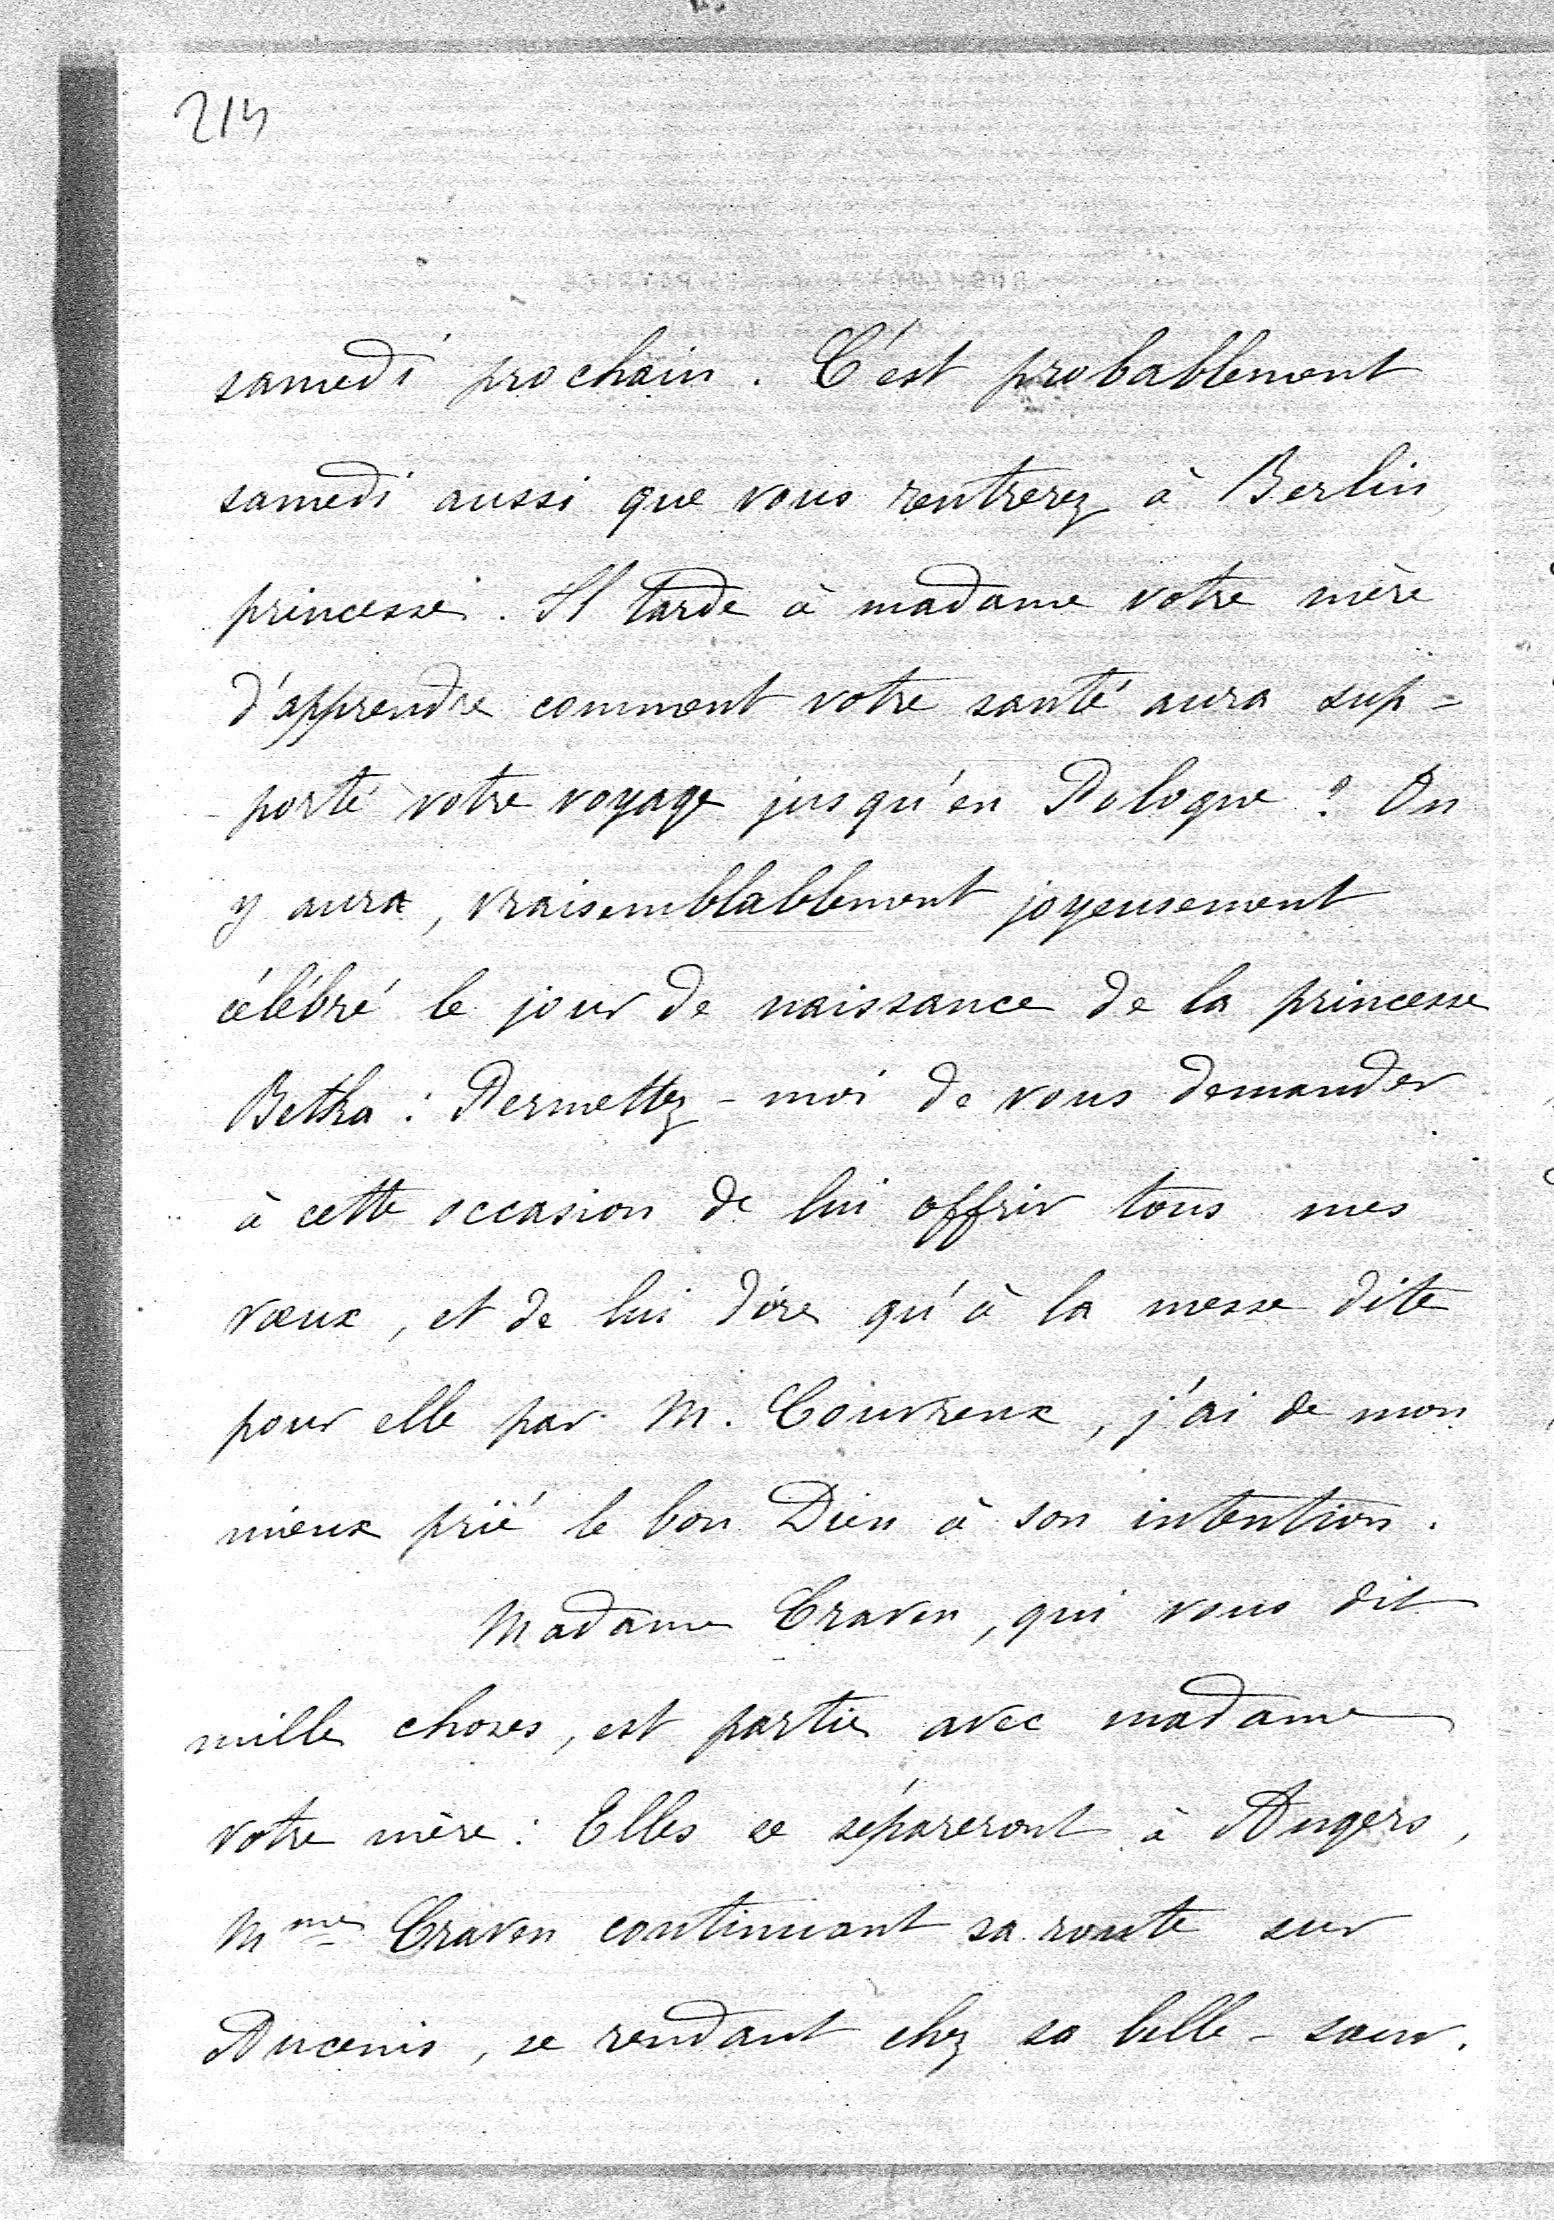 samedi prochain. C'est probablement
samedi aussi que vous rentrerez à Berlin,
princesse. Il tarde à madame votre mère
d'apprendre comment votre santé aura sup=
porté votre voyage jusqu'en Pologne ? On
y aura, vraisemblablement joyeusement
célébré le jour de naissance de la princesse
Betka : Permettez-moi de vous demander
à cette occasion de lui offrir tous mes
vœux, et de lui dire qu'à la messe dite
pour elle par M. Couvreux, j'ai de mon
mieux prié le bon Dieu à son intention.
Madame Craven, qui vous dit
mille choses, est partie avec madame
votre mère : Elles se sépareront à Angers,
Mme Craven continuant sa route sur
Ancenis, se rendant chez sa belle-sœur.